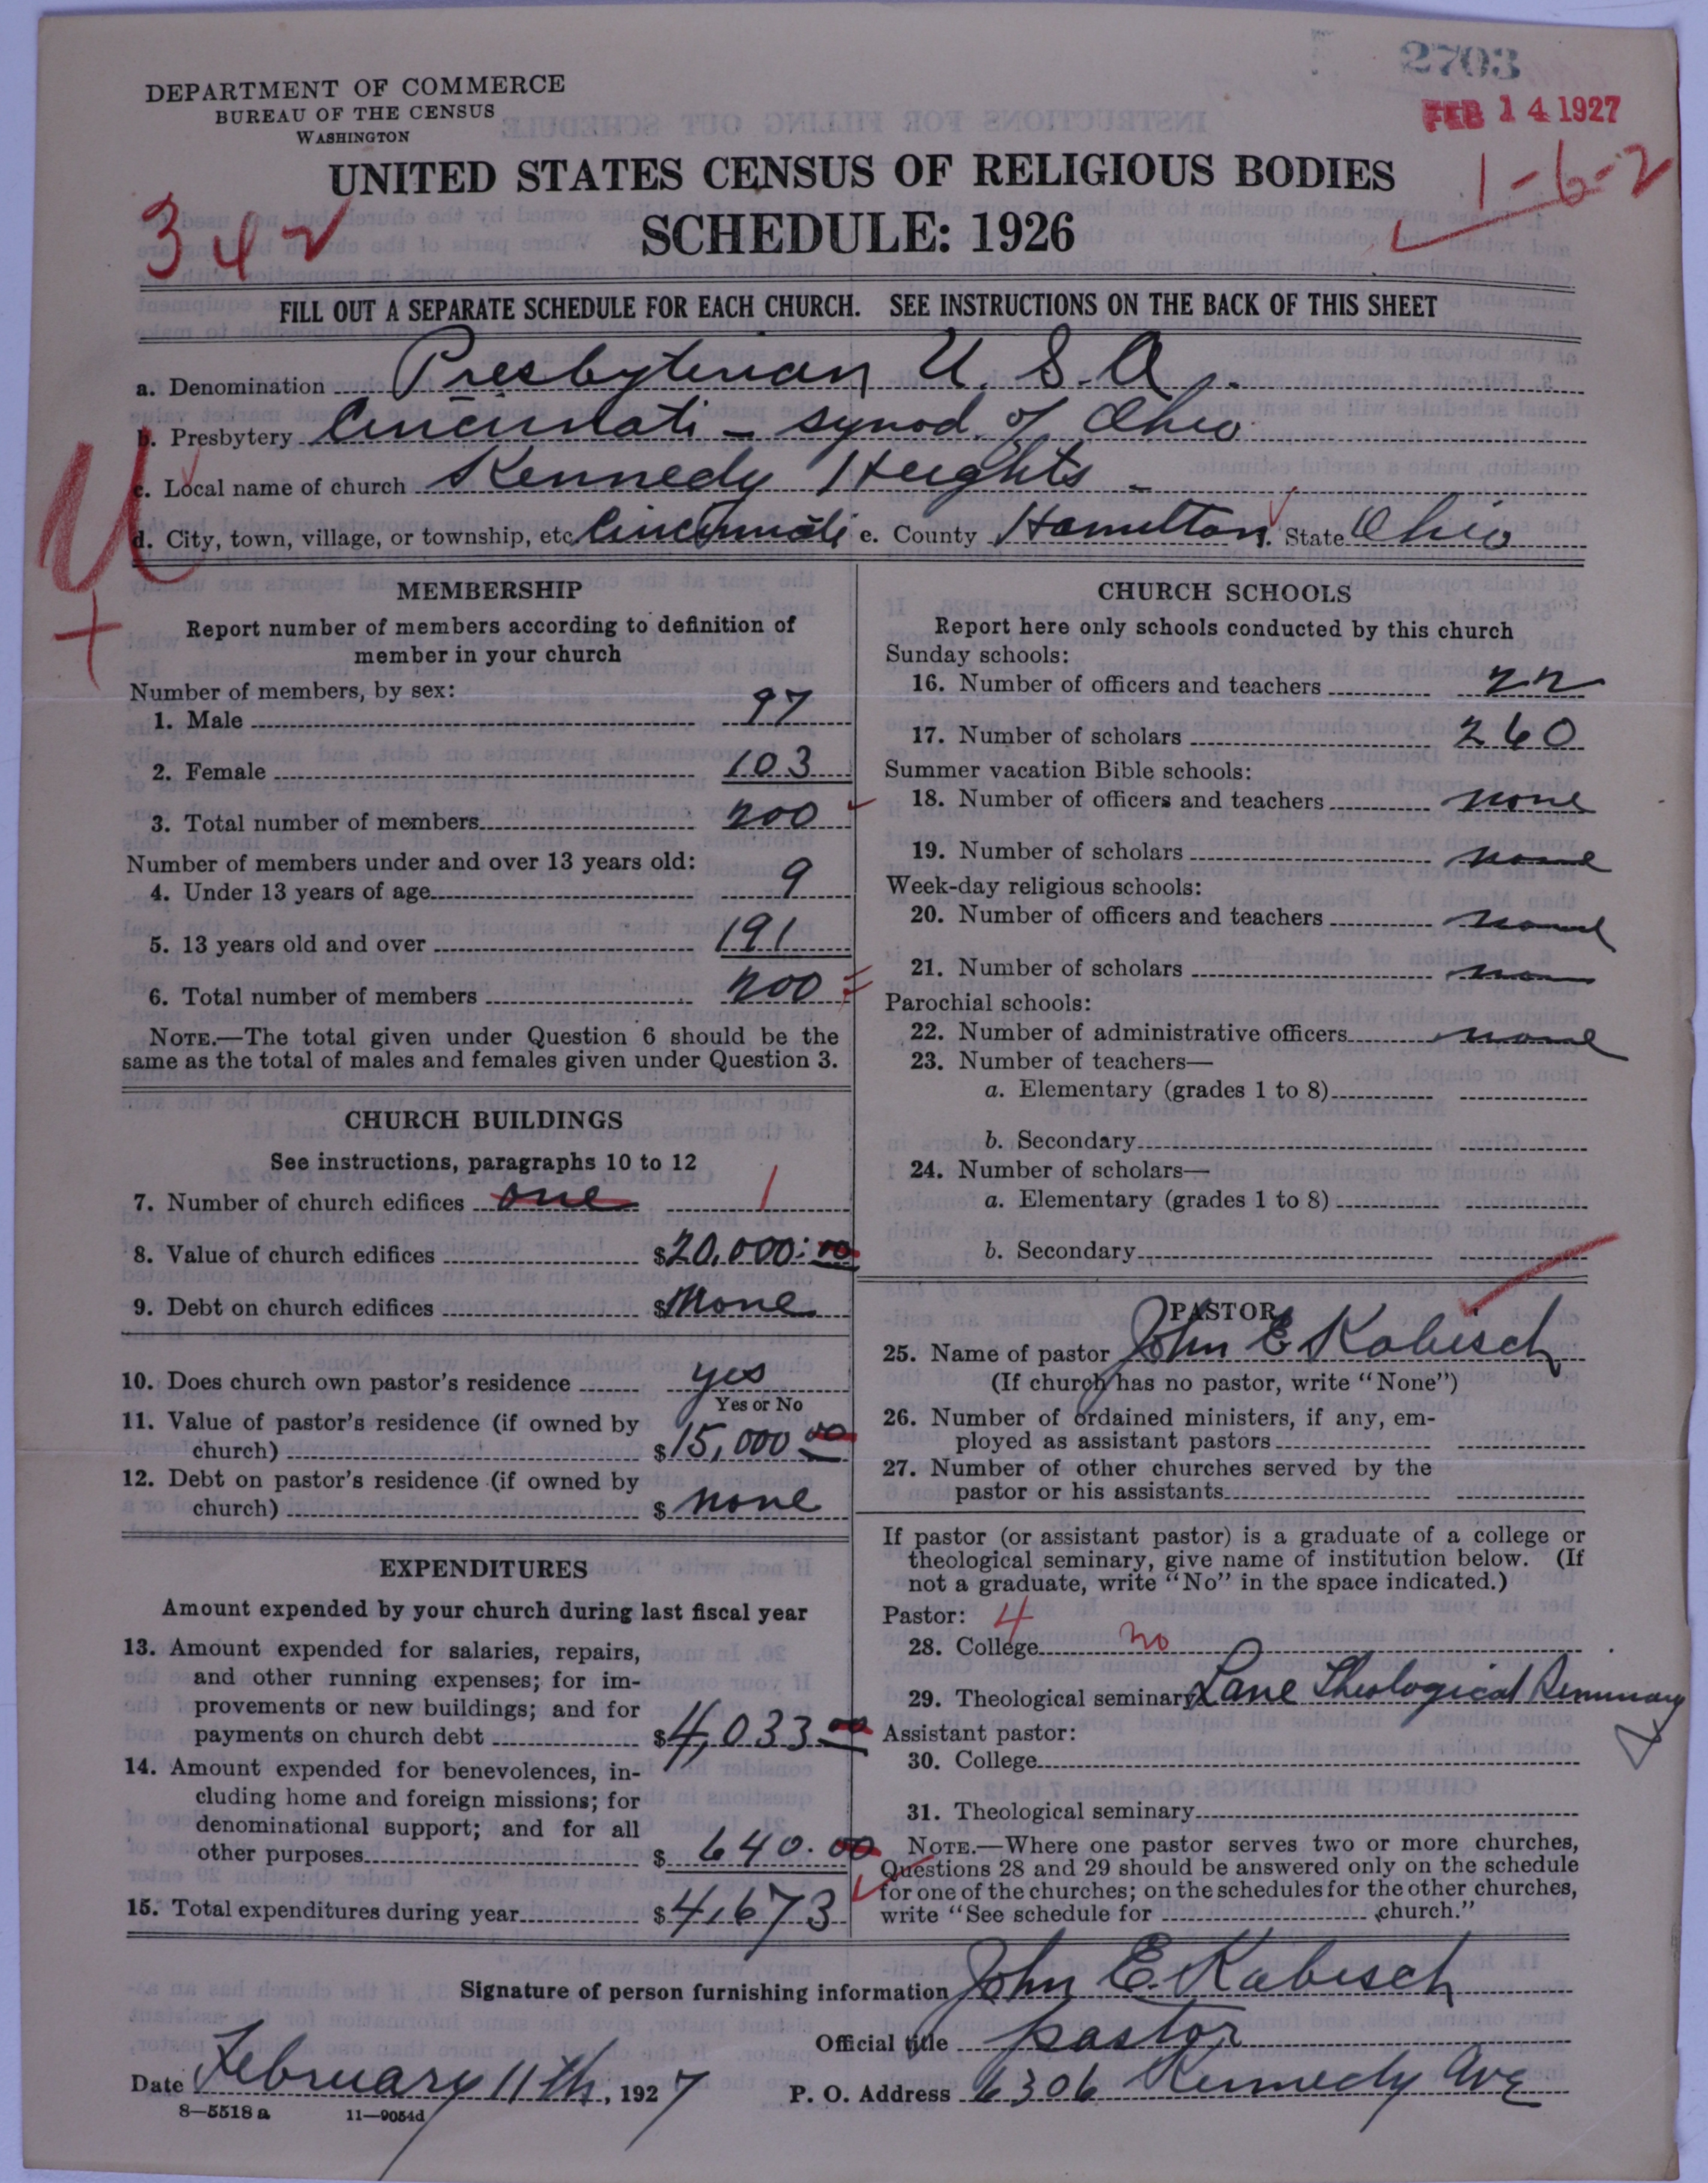 2703
DEPARTMENT OF COMMERCE
BUREAU OF THE CENSUS
WASHINGTON
FEB 14 1927
UNITED STATES CENSUS OF RELIGIOUS BODIES
1-6-2
342
SCHEDULE: 1926
FILL OUT A SEPARATE SCHEDULE FOR EACH CHURCH. SEE INSTRUCTIONS ON THE BACK OF THIS SHEET
a. Denomination Presbyterian U. S. A.
b. Presbytery Cincinnati - synod of Ohio
c. Local name of church Kennedy Heights -
d. City, town, village, or township, etc. Cincinnati e. County Hamilton State Ohio
MEMBERSHIP
Report number of members according to definition of
member in your church
Number of members, by sex:
1. Male 97
2. Female 103
3. Total number of members 200
Number of members under and over 13 years old:
4. Under 13 years of age 9
5. 13 years old and over 191
6. Total number of members 200
NOTE.—The total given under Question 6 should be the
same as the total of males and females given under Question 3.
CHURCH BUILDINGS
See instructions, paragraphs 10 to 12
7. Number of church edifices one 1
8. Value of church edifices $20,000.00
9. Debt on church edifices $None
10. Does church own pastor's residence yes
Yes or No
11. Value of pastor's residence (if owned by
church) $15,000 00
12. Debt on pastor's residence (if owned by
church) $ none
EXPENDITURES
Amount expended by your church during last fiscal year
13. Amount expended for salaries, repairs,
and other running expenses; for im-
provements or new buildings; and for
payments on church debt $4,033 00
14. Amount expended for benevolences, in-
cluding home and foreign missions; for
denominational support; and for all
other purposes $ 640.00
15. Total expenditures during year $4,673
CHURCH SCHOOLS
Report here only schools conducted by this church
Sunday schools:
16. Number of officers and teachers 22
17. Number of scholars 260
Summer vacation Bible schools:
18. Number of officers and teachers none
19. Number of scholars none
Week-day religious schools:
20. Number of officers and teachers none
21. Number of scholars non
Parochial schools:
22. Number of administrative officers none
23. Number of teachers—
a. Elementary (grades 1 to 8)
b. Secondary
24. Number of scholars—
a. Elementary (grades 1 to 8)
b. Secondary
PASTOR
25. Name of pastor John E Kabisch
(If church has no pastor, write "None")
26. Number of ordained ministers, if any, em-
ployed as assistant pastors
27. Number of other churches served by the
pastor or his assistants
If pastor (or assistant pastor) is a graduate of a college or
theological seminary, give name of institution below. (If
not a graduate, write "No" in the space indicated.)
Pastor: 4
28. College no
29. Theological seminary Lane Theological Seminary
Assistant pastor:
30. College
31. Theological seminary
NOTE.—Where one pastor serves two or more churches,
Questions 28 and 29 should be answered only on the schedule
for one of the churches; on the schedules for the other churches,
write "See schedule for church."
Signature of person furnishing information John E. Kabisch
Official title pastor
Date February 11th, 1927 P. O. Address 6306 Kennedy Ave
8—5518 a 11—9054d